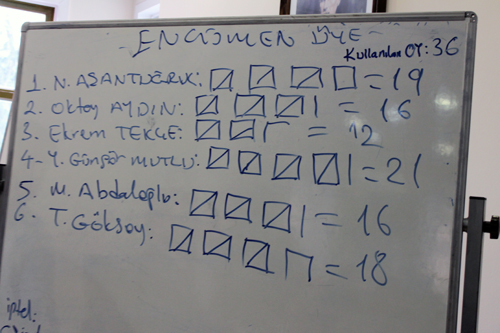 ENCÜMEN ÜYE
Kullanılan OY: 36
1. N. ASANTUĞRUL: = 19
2. Oktay AYDIN: = 16
3. Ekrem TEKÇE: = 12
4- Y. Güngör MUTLU: = 21
5. M. Abdaloğlu: = 16
6. T. Göksoy: = 18
iptal: